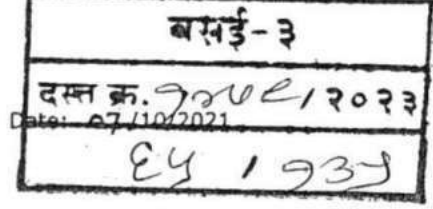 वसई-३
दस्त क्र. / २०२३
Date: 07/10/2021
६५ / १३५